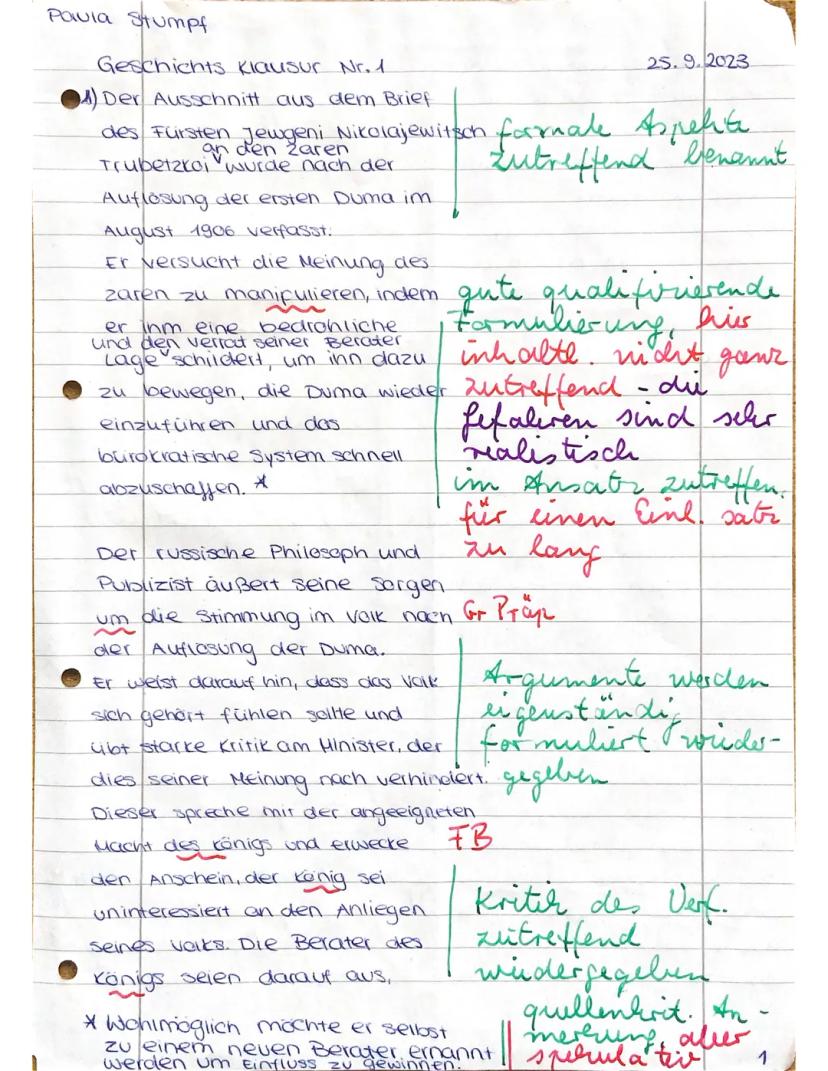 Paula Stumpf
Geschichts Klausur Nr. 1 25.9.2023
1) Der Ausschnitt aus dem Brief
des Fürsten Jewgeni Nikolajewitsch formale Aspekte
an den Zaren
Trubetzkoi wurde nach der zutreffend benannt
Auflösung der ersten Duma im
August 1906 verfasst.
Er versucht die Meinung des
Zaren zu manipulieren, indem gute qualifizierende
er ihm eine bedrohliche Formulierung, hier
und den Verrat seiner Berater
Lage schildert, um ihn dazu inhaltl. nicht ganz
zu bewegen, die Duma wieder zutreffend - die
einzuführen und das Gefahren sind sehr
bürokratische System schnell realistisch
abzuschaffen. * im Ansatz zutreffen.
für einen Einl. satz
Der russische Philosoph und zu lang
Publizist äußert seine Sorgen
um die Stimmung im Volk nach Gr Präp
der Auflösung der Duma.
Er weist darauf hin, dass das Volk Argumente werden
sich gehört fühlen sollte und eigenständig
übt starke Kritik am Minister, der formuliert wieder-
dies seiner Meinung nach verhindert. gegeben
Dieser spreche mit der angeeigneten
Macht des Königs und erwecke FB
den Anschein, der König sei
uninteressiert an den Anliegen Kritik des Verf.
seines Volks. Die Berater des zutreffend
Königs seien darauf aus, wiedergegeben
quellenkrit. An-
* Wohlmöglich möchte er selbst merkung, aber
zu einem neuen Berater ernannt spekulativ
werden um Einfluss zu gewinnen. 1